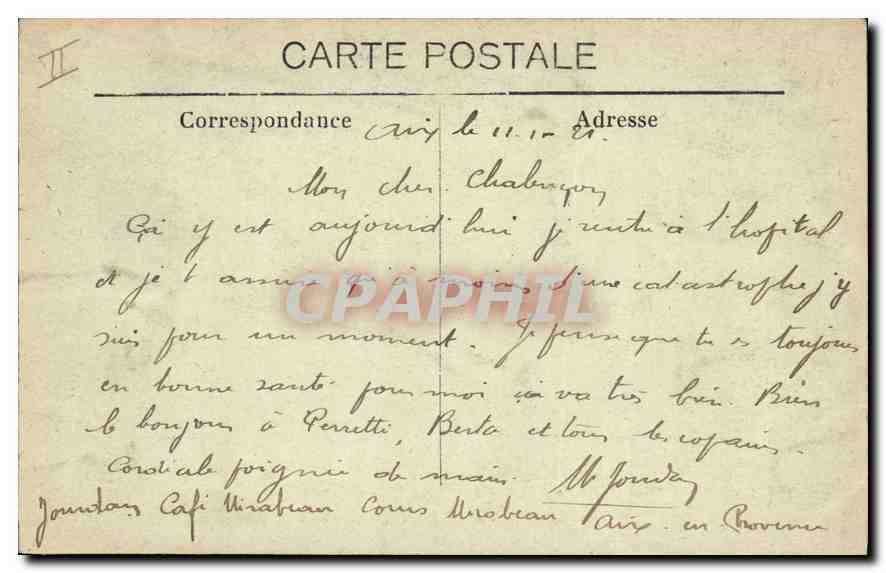 II
CARTE POSTALE
Correspondance Adresse
Aix le 11.1-21.
Mon cher
Ça y est aujourd'hui j'rentre à l'hopital
et je t'assure qu'à moins d'une catastrophe j'y
suis pour un moment. Je pense que tu es toujours
en bonne santé pour moi ça va très bien. Bien
le bonjour à Perretti, Berta et tous les copains.
Cordiale poignée de main. M Jourdan
Jourdan Café Mirabeau Cours Mirabeau Aix-en-Provence
CPAPHIL